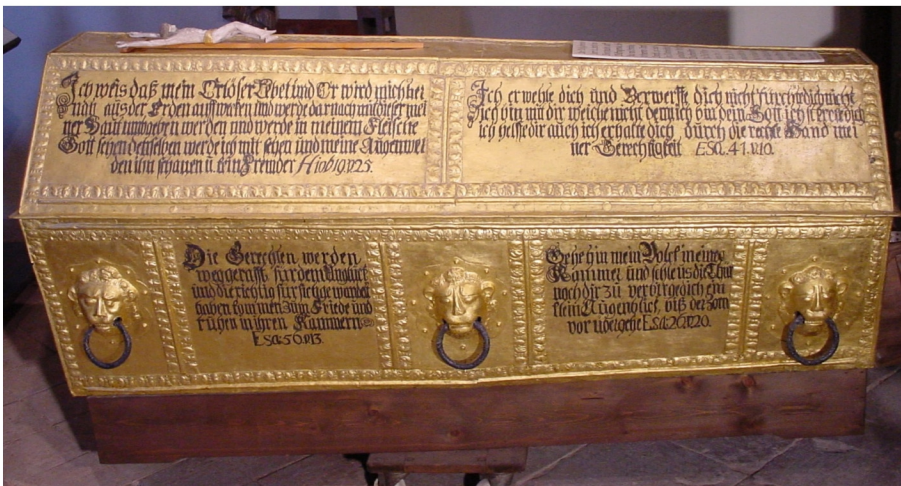 Ich weis daß mein Erlöser Lebet und Er wird mich her
nach aus der Erden auff weken und werde darnach mit dieser mei
ner Haut umgeben werden und werde in meinem Fleische
Gott sehen denselben werde ich mir sehen und meine Augen wer
den ihn schauen u. kein Fremder Hiob 19. v 25.
Ich erwehle dich und Verwerffe dich nicht fürchte dich nicht
Ich bin mit dir weiche nicht denn ich bin dein Gott ich stercke dich
ich helffe dir auch ich erhalte dich durch die rechte Hand mei
ner Gerechtigkeit ESA. 41. v. 10.
Die Gerechten werden
weggerafft für dem Unglück
und die richtig für sich gewandelt
haben kommen zum Friede und
ruhen in ihren Kammern
ESA:
Gehe hin mein Volk in eine
Kammer und schleus die Thür
nach dir zu verbirge dich ein
klein Augenblick, biß der Zorn
vor übergehe ESA: 26. v. 20.